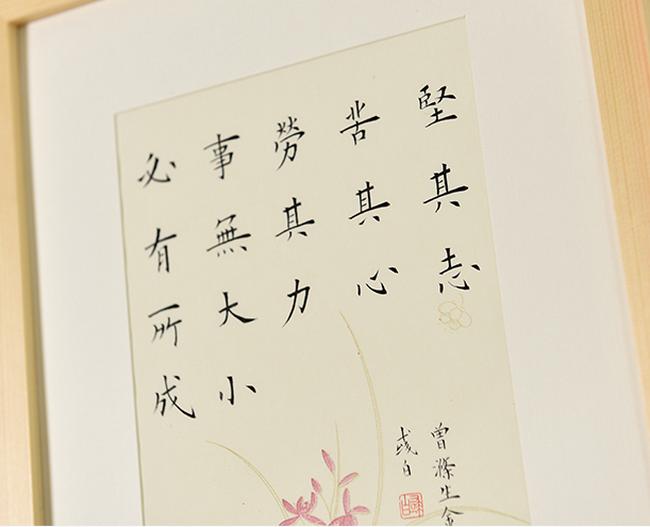 堅其志
苦其心
勞其力
事無大小
必有所成
曾滌生金
彧自